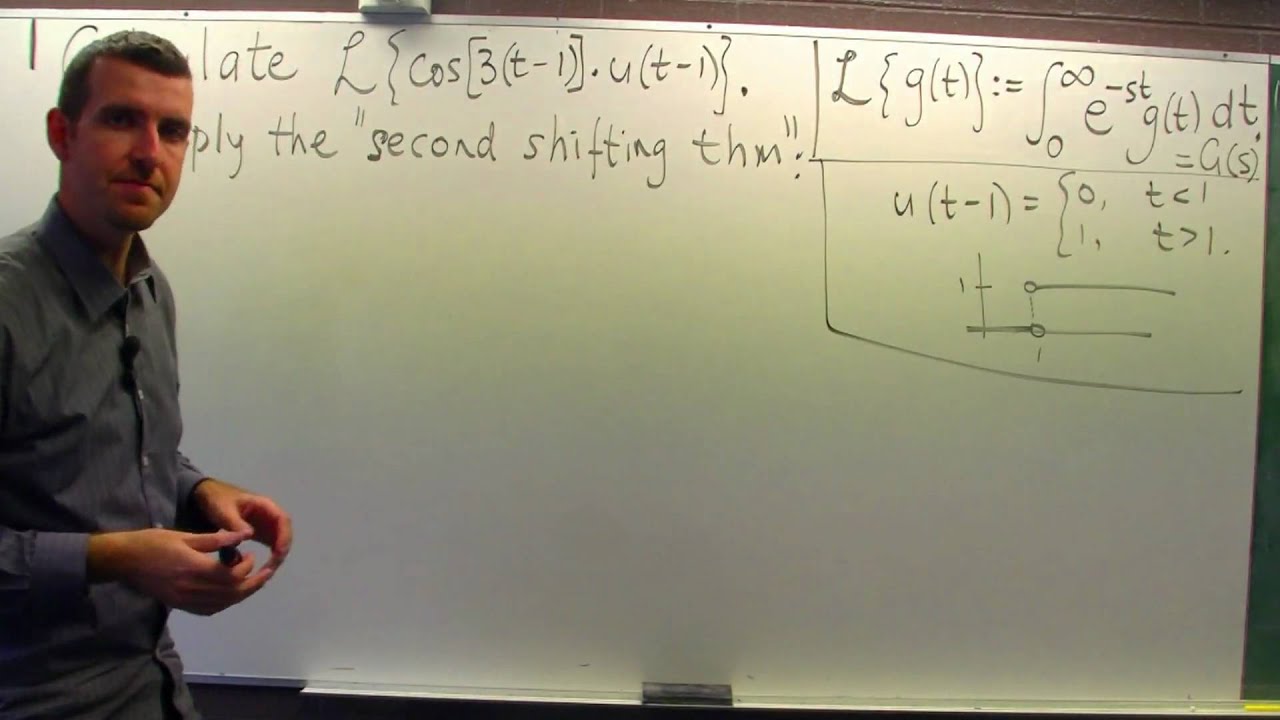 1 C late ℒ{cos[3(t-1)]·u(t-1)}.
ply the "second shifting thm".
ℒ{g(t)} := ∫₀^∞ e^{-st} g(t) dt.
= G(s)
u(t-1) = {0, t<1
{1, t>1.
1
1